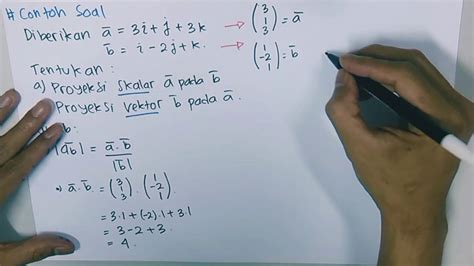 # Contoh Soal
Diberikan a̅ = 3i̅ + j̅ + 3k → (3 1 3) = a̅
b̅ = i̅ - 2j + k. → (1 -2 1) = b̅
Tentukan :
a) Proyeksi skalar a̅ pada b̅
Proyeksi vektor b̅ pada a̅.
b:
|a̅b| = a̅.b̅ / |b̅|
⇒ a̅.b̅ = (3 1 3) . (1 -2 1)
= 3.1 + (-2).1 + 3.1
= 3 - 2 + 3
= 4.